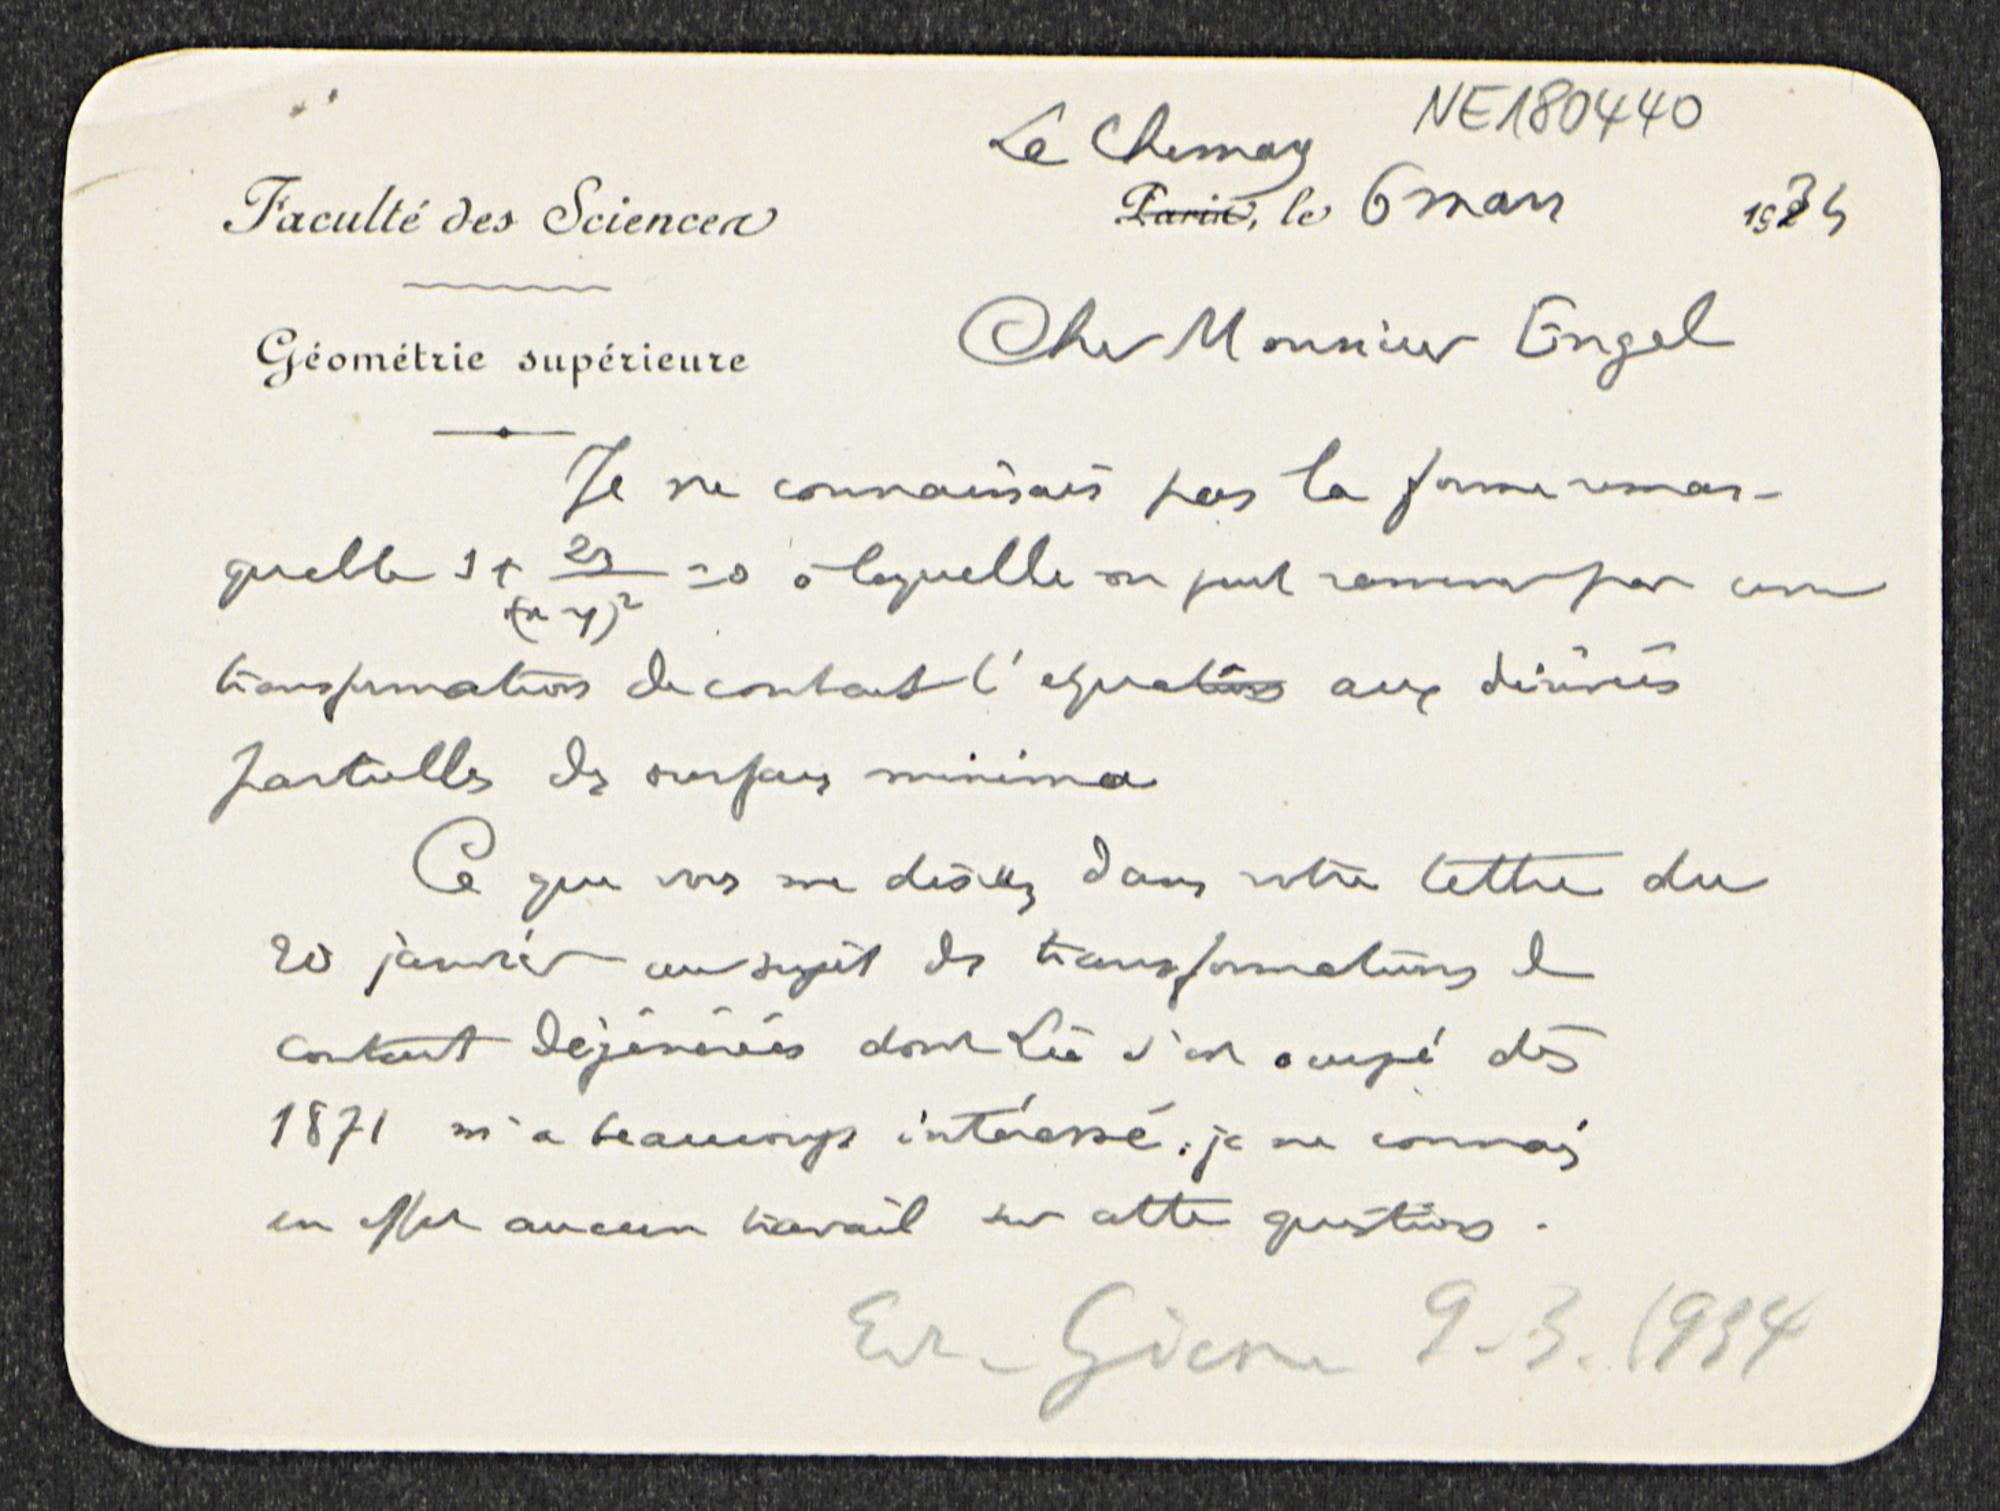 NE180440
Le Chesnay
Faculté des Sciences
Paris, le 6 mars 1934
Géométrie supérieure
Cher Monsieur Engel
Je ne connaissais pas la forme remar-
quable s + 2z/(x-y)² = 0 à laquelle on peut ramener par une
transformation de contact l'équation aux dérivées
partielles des surfaces minima
Ce que vous me disiez dans votre lettre du
20 janvier au sujet des transformations de
contact dégénérées dont Lie s'est occupé dès
1871 m'a beaucoup intéressé; je ne connais
en effet aucun travail sur cette question.
Giessen 9.3.1934